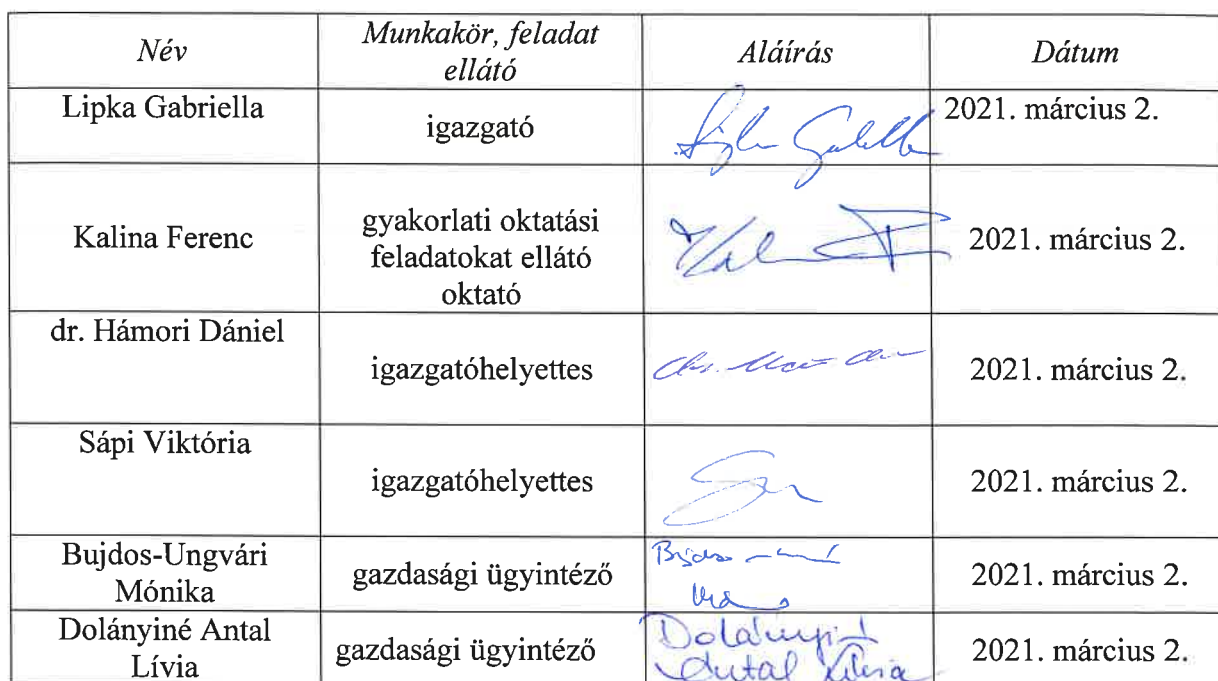 Név
Munkakör, feladat
ellátó
Aláírás
Dátum
Lipka Gabriella
igazgató
2021. március 2.
Kalina Ferenc
gyakorlati oktatási
feladatokat ellátó
oktató
2021. március 2.
dr. Hámori Dániel
igazgatóhelyettes
2021. március 2.
Sápi Viktória
igazgatóhelyettes
2021. március 2.
Bujdos-Ungvári
Mónika
gazdasági ügyintéző
2021. március 2.
Dolányiné Antal
Lívia
gazdasági ügyintéző
Dolányiné
Antal Lívia
2021. március 2.